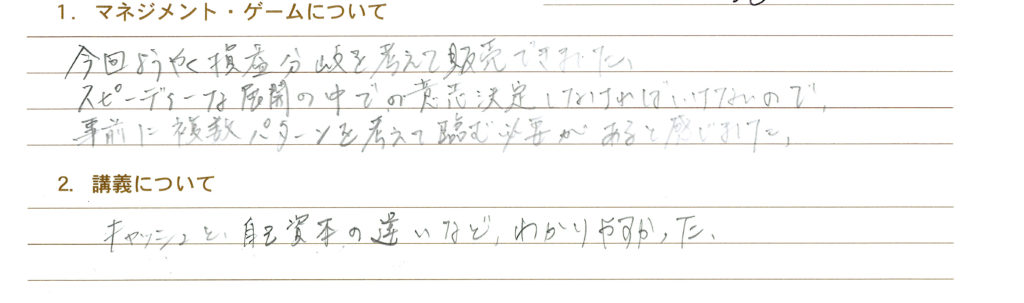 1. マネジメント・ゲームについて
今回ようやく損益分岐を考えて販売できました。
スピーディーな展開の中での意志決定しなければいけないので、
事前に複数パターンを考えて臨む必要があると感じました。
2. 講義について
キャッシュと、自己資本の違いなど、わかりやすかった。